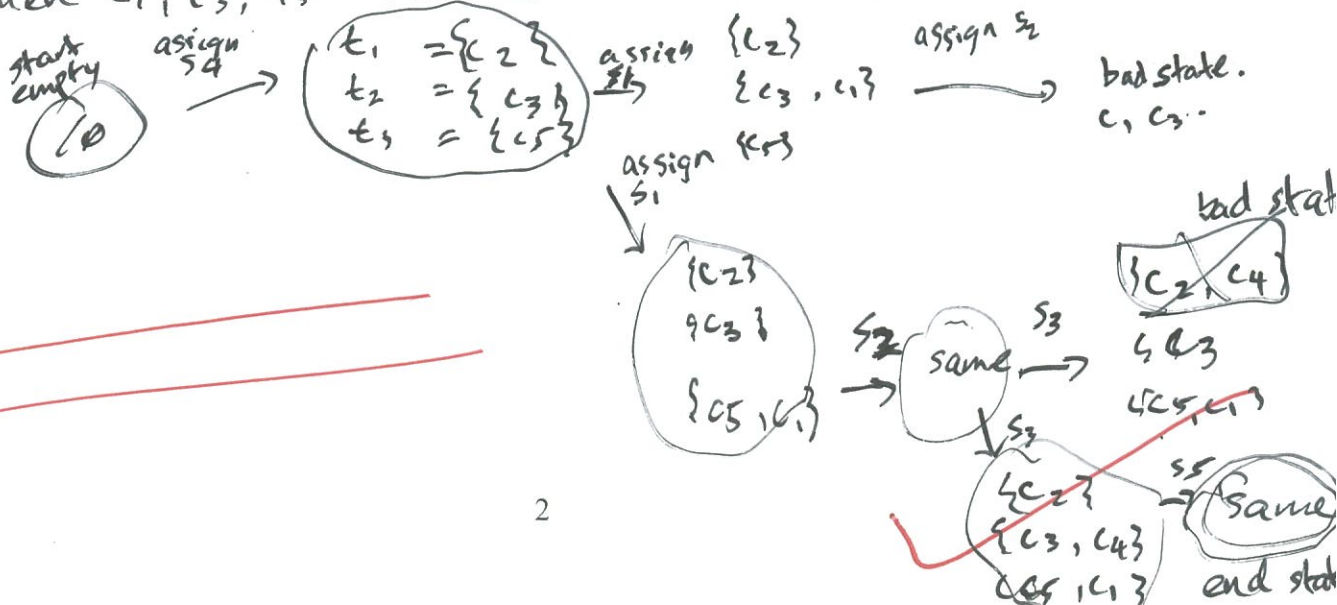 start
empty
∅
assign
S4
t1 = {c2}
t2 = {c3}
t3 = {c5}
assign
{c2}
{c3, c1}
{c5}
assign S2
bad state.
c1 c3..
assign
S1
{c2}
{c3}
{c5, c1}
S2
same
S3
bad stat
{c2, c4}
{c3
{c5, c1}
S3
{c2}
{c3, c4}
{c5, c1}
S5
same
end stat
2